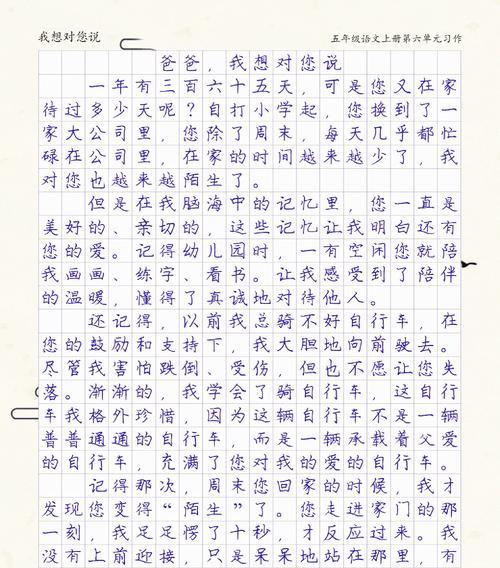 我想对您说
五年级语文上册第六单元习作
爸爸，我想对您说
一年有三百六十五天，可是您又在家
待过多少天呢？自打小学起，您换到了一
家大公司里，您除了周末，每天几乎都忙
碌在公司里，在家的时间越来越少了，我
对您也越来越陌生了。
但是在我脑海中的记忆里，您一直是
美好的、亲切的，这些记忆让我明白还有
您的爱。记得幼儿园时，一有空闲您就陪
我画画、练字、看书。让我感受到了陪伴
的温暖，懂得了真诚地对待他人。
还记得，以前我总骑不好自行车，在
您的鼓励和支持下，我大胆地向前驶去。
尽管我害怕跌倒、受伤，但也不愿让您失
落。渐渐的，我学会了骑自行车，这自行
车我格外珍惜，因为这辆自行车不是一辆
普普通通的自行车，而是一辆承载着父爱
的自行车，充满了您对我的爱的自行车。
记得那次，周末您回家的时候，我才
发现您变得“陌生”了。您走进家门的那
一刻，我足足愣了十秒，才反应过来。我
没有上前迎接，只是呆呆地站在那里，有